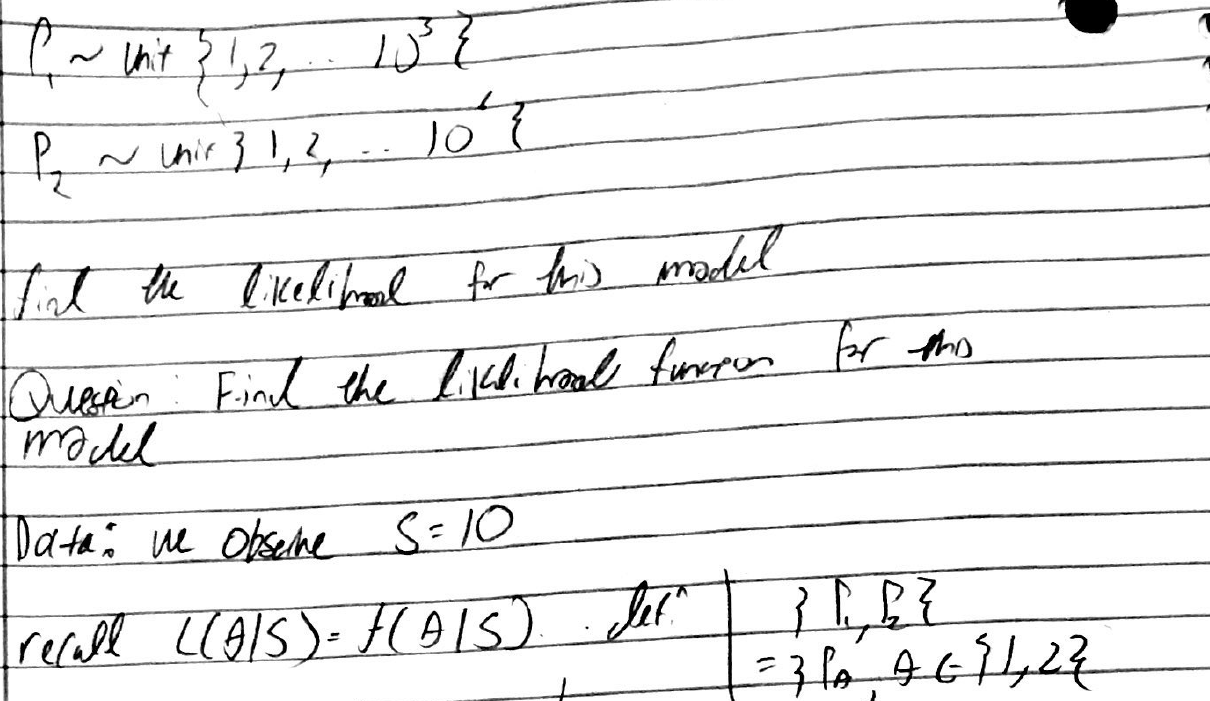 P₁ ~ Unif {1,2, .. 10³}
P₂ ~ Unif {1,2, .. 10⁶}
find the likelihood for this model
Question: Find the likelihood function for this
model
Data: we observe S=10
recall L(θ|S) = f(θ|S) . def^n
{P₁, P₂}
= {P_θ, θ ∈ {1,2}